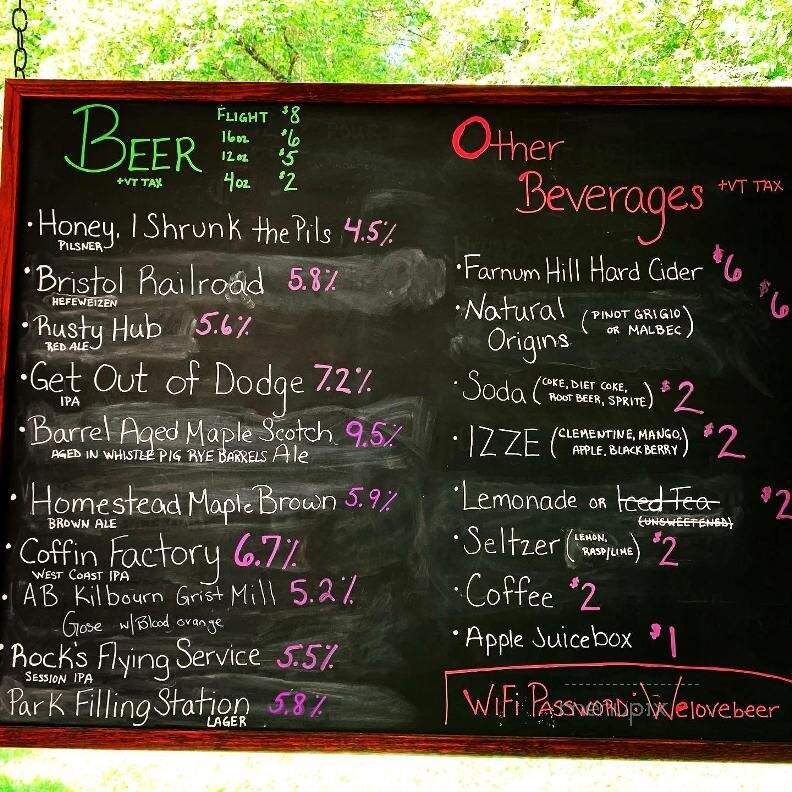 BEER
+VT TAX
FLIGHT $8
16oz $6
12oz $5
4oz $2
• Honey, I Shrunk the Pils 4.5%
PILSNER
• Bristol Railroad 5.8%
HEFEWEIZEN
• Rusty Hub 5.6%
RED ALE
• Get Out of Dodge 7.2%
IPA
• Barrel Aged Maple Scotch 9.5%
AGED IN WHISTLE PIG RYE BARRELS Ale
• Homestead Maple Brown 5.9%
BROWN ALE
• Coffin Factory 6.7%
WEST COAST IPA
• AB Kilbourn Grist Mill 5.2%
Gose w/Blood orange
• Rock's Flying Service 5.5%
SESSION IPA
Park Filling Station 5.8%
LAGER
Other
Beverages +VT TAX
• Farnum Hill Hard Cider $6
• Natural (PINOT GRIGIO $6
Origins OR MALBEC)
• Soda (COKE, DIET COKE, $2
ROOT BEER, SPRITE)
• IZZE (CLEMENTINE, MANGO, $2
APPLE, BLACKBERRY)
• Lemonade OR Iced Tea $2
(UNSWEETENED)
• Seltzer (LEMON, $2
RASP/LIME)
• Coffee $2
• Apple Juicebox $1
WiFi PASSWORD: Welovebeer